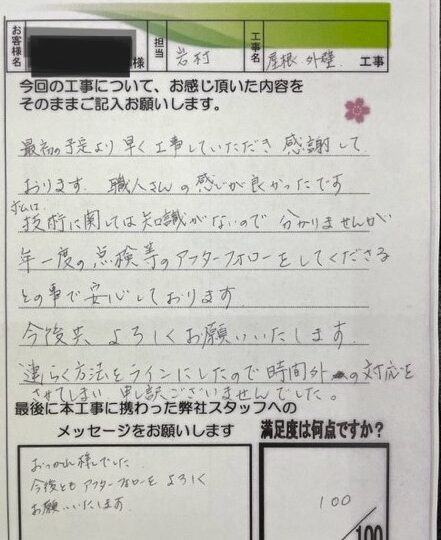 お客様名 様 担当 岩村 工事名 屋根 外壁 工事
今回の工事について、お感じ頂いた内容を
そのままご記入お願いします。
最初の予定より早く工事していただき 感謝して
おります. 職人さんの感じが良かったです
技術に関しては知識がないので 分かりませんが
年一度の点検等のアフターフォローをしてくださる
との事で安心しております
今後共 よろしくお願いいたします.
連らく方法をラインにしたので時間外の対応を
させてしまい 申し訳ございませんでした。
最後に本工事に携わった弊社スタッフへの
メッセージをお願いします
満足度は何点ですか?
おつかれ様でした
今後とも アフターフォローを よろしく
お願いいたします
100
/100